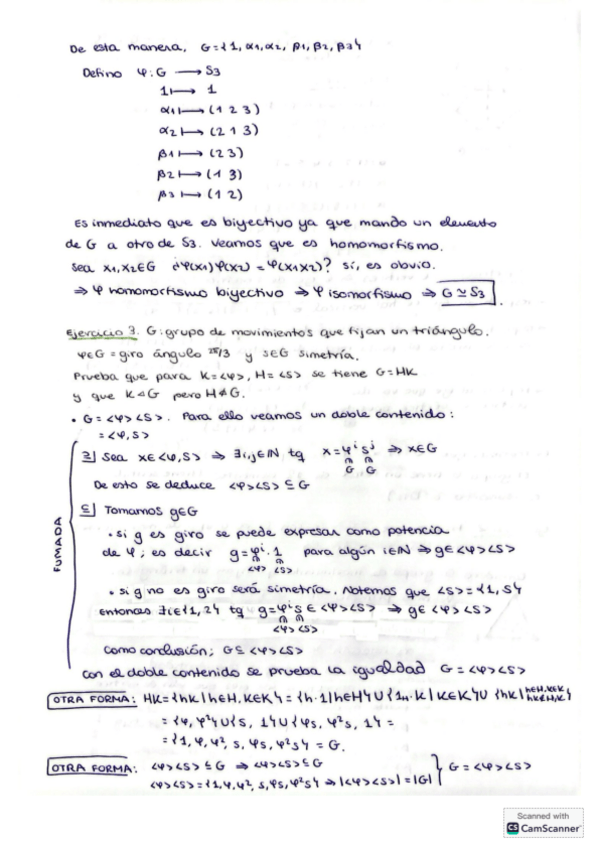 De esta manera, G={1, α1, α2, β1, β2, β3}
Defino φ: G ⟶ S3
1 ⟼ 1
α1 ⟼ (1 2 3)
α2 ⟼ (2 1 3)
β1 ⟼ (2 3)
β2 ⟼ (1 3)
β3 ⟼ (1 2)
Es inmediato que es biyectivo ya que mando un elemento
de G a otro de S3. Veamos que es homomorfismo.
Sea x1,x2∈G ¿φ(x1)φ(x2) = φ(x1x2)? sí, es obvio.
⇒ φ homomorfismo biyectivo ⇒ φ isomorfismo ⇒ G ≃ S3.
Ejercicio 3. G: grupo de movimientos que fijan un triángulo.
φ∈G = giro ángulo 2π/3 y s∈G simetría.
Prueba que para K=<φ>, H=<s> se tiene G=HK
y que K⊲G pero H⋪G.
• G=<φ><s>. Para ello veamos un doble contenido:
=<φ,s>
FUMADA
⊇] Sea x∈<φ,s> ⇒ ∃i,j∈ℕ tq x=φⁱsʲ ⇒ x∈G
G G
De esto se deduce <φ><s> ⊆ G
⊆] Tomamos g∈G
• si g es giro se puede expresar como potencia
de φ; es decir g=φⁱ·1 para algún i∈ℕ ⇒ g∈<φ><s>
<φ> <s>
• si g no es giro será simetría. Notemos que <s>={1,s}
Entonces ∃i∈{1,2} tq g=φⁱs ∈ <φ><s> ⇒ g∈<φ><s>
<φ> <s>
Como conclusión; G⊆<φ><s>
Con el doble contenido se prueba la igualdad G=<φ><s>
OTRA FORMA: HK={hk|h∈H, k∈K}={h·1|h∈H}∪{1H·k|k∈K}∪{hk|h∈H, k∈K,
={φ,φ²}∪{s,1}∪{φs,φ²s,1}=
={1,φ,φ²,s,φs,φ²s}=G.
OTRA FORMA: <φ><s>≤G ⇒ <φ><s>⊆G
<φ><s>={1,φ,φ²,s,φs,φ²s} ⇒ |<φ><s>|=|G| } G=<φ><s>
Scanned with
CS CamScanner